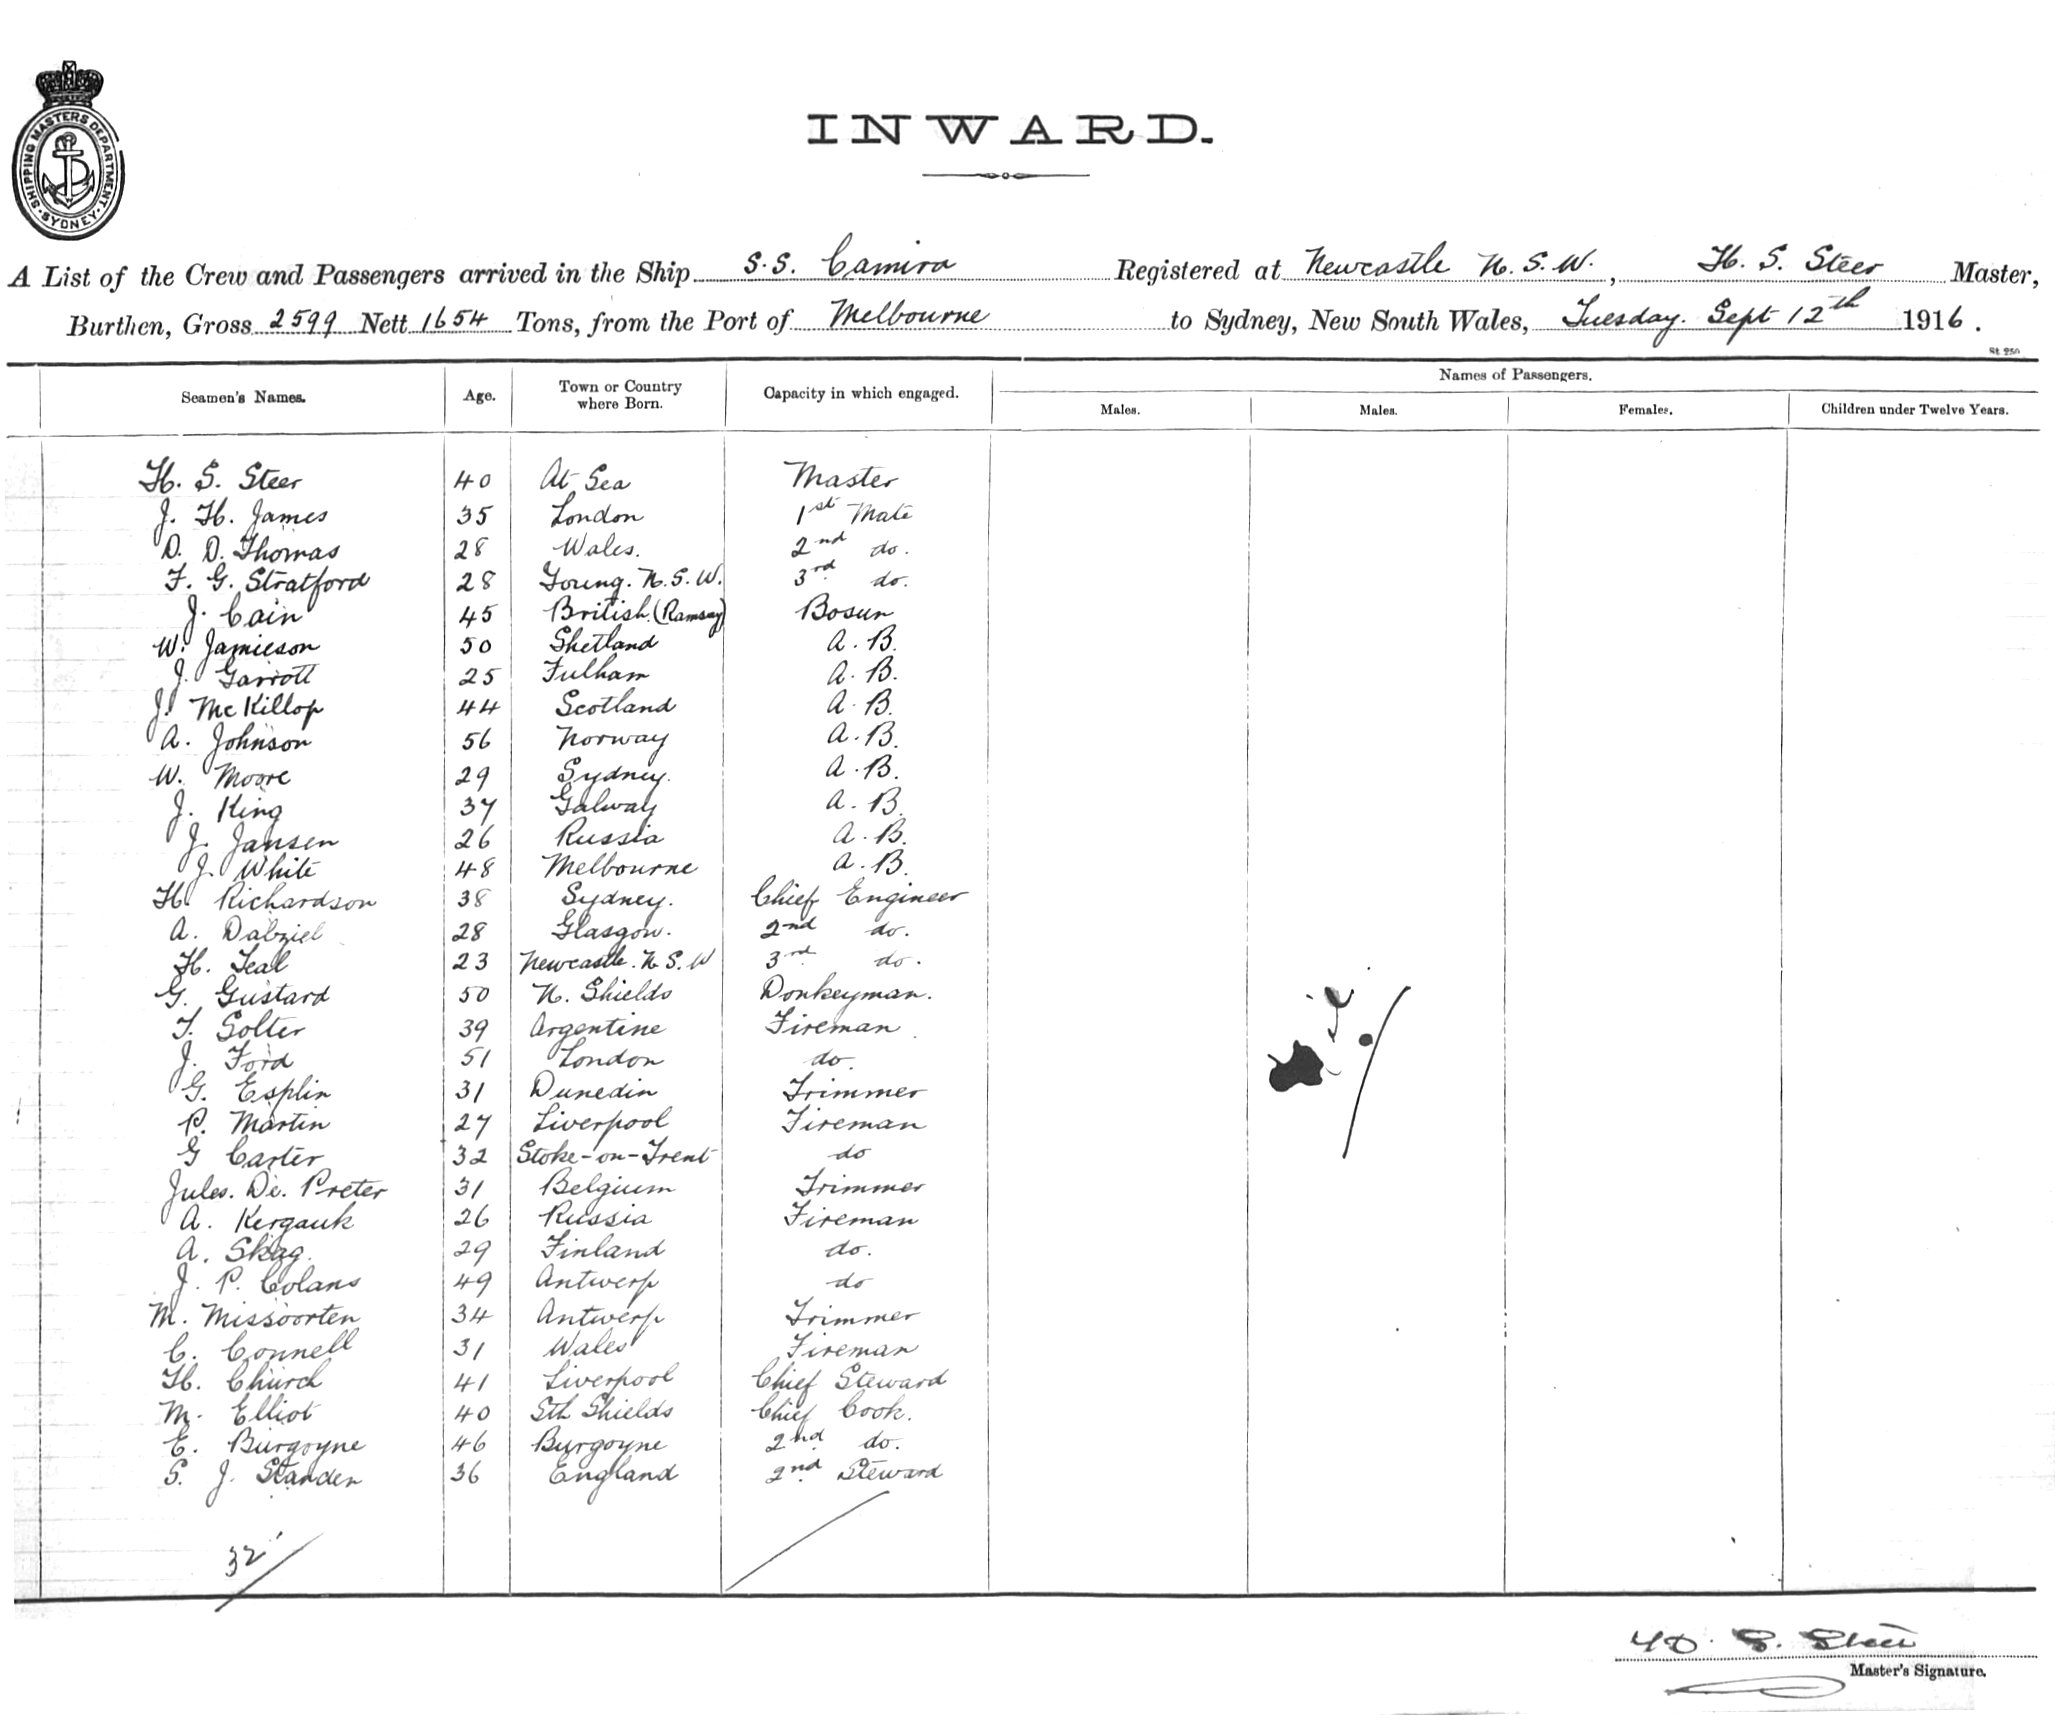 SHIPPING MASTERS DEPARTMENT
SYDNEY
INWARD.
A List of the Crew and Passengers arrived in the Ship S.S. Camira Registered at Newcastle N.S.W., H. S. Steer Master,
Burthen, Gross 2599 Nett 1654 Tons, from the Port of Melbourne to Sydney, New South Wales, Tuesday. Sept 12th 1916.
St 250
Seamen's Names. Age. Town or Country where Born. Capacity in which engaged. Names of Passengers.
Males. Males. Females. Children under Twelve Years.
H. S. Steer 40 At Sea Master
J. H. James 35 London 1st Mate
D. D. Thomas 28 Wales. 2nd do.
F. G. Stratford 28 Young. N.S.W. 3rd do.
J. Cain 45 British (Ramsay) Bosun
W. Jamieson 50 Shetland A.B.
J. Garrott 25 Fulham A.B.
J. McKillop 44 Scotland A.B.
A. Johnson 56 Norway A.B.
W. Moore 29 Sydney. A.B.
J. King 37 Galway A.B.
J. Jansen 26 Russia A.B.
J. White 48 Melbourne A.B.
H. Richardson 38 Sydney. Chief Engineer
A. Dalziel 28 Glasgow. 2nd do.
H. Teal 23 Newcastle. N.S.W 3rd do.
G. Gustard 50 N. Shields Donkeyman.
T. Solter 39 Argentine Fireman
J. Ford 51 London do.
G. Esplin 31 Dunedin Trimmer
P. Martin 27 Liverpool Fireman
G Carter 32 Stoke-on-Trent do
Jules. De. Preter 31 Belgium Trimmer
A. Kergauk 26 Russia Fireman
A. Skag. 29 Finland do.
J. P. Colans 49 Antwerp do
M. Missoorten 34 Antwerp Trimmer
C. Connell 31 Wales Fireman
H. Church 41 Liverpool Chief Steward
M. Elliot 40 Sth Shields Chief Cook.
E. Burgoyne 46 Burgoyne 2nd do.
S. J. Standen 36 England 2nd Steward
32
H. S. Steer
Master's Signature.